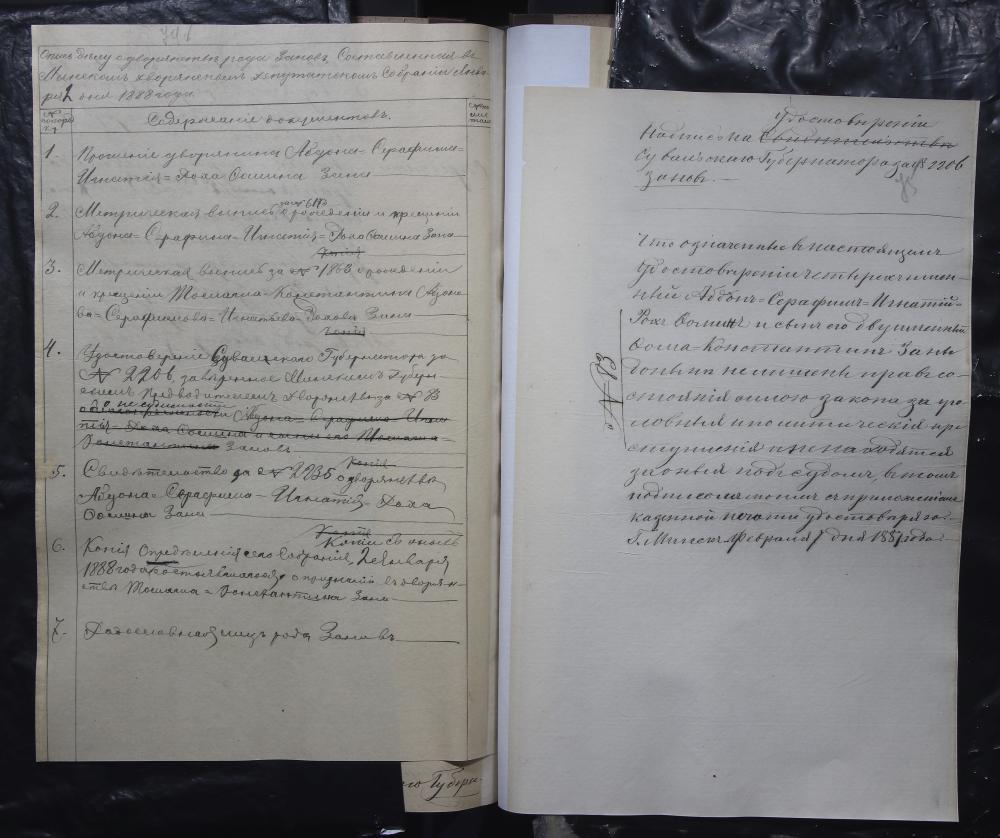 Опись делу о дворянстве рода Зановъ, Составленная въ
Минскомъ дворянскомъ депутатскомъ Собраніи Янва-
ря 2 дня 1888 года.
Содержаніе документовъ.
1. Прошеніе дворянина Абдона-Серафима-
Игнатія-Роха Фомина Зана
2. Метрическая выпись о рожденіи и крещеніи
Абдона-Серафима-Игнатія-Роха Фомина Зана
Копія
3. Метрическая выпись за № 1863 о рожденіи
и крещеніи Томаша-Константина Абдоно-
ва-Серафимова-Игнатьева-Рохова Зана
Копія
4. Удостовереніе Сувалскаго Губернатора за
№ 2206, заверенное Минскимъ Губерн-
скимъ Предводителемъ дворянства за № 13
о несудимости Абдона-Серафима-Игна-
тія-Роха Фомина и сына его Томаша-
Константина Зановъ
5. Свидѣтельство за № 2235 о дворянствѣ
Копія
Абдона-Серафима-Игнатія-Роха
Фомина Зана
Копія
6. Копія Опредѣленія сего Собранія, 2 Января
1888 года состоявшагося, о признаніи въ дворян-
ствѣ Томаша-Константина Зана
7. Родословная лицъ рода Зановъ
го Губерн-
Удостовѣреніи
Надпись на Свидѣтельствѣ
Сувалскаго Губернатора за № 2206
Зановъ.
Что означенные въ настоящемъ
Удостовѣреніи четырехъимен-
ный Абдонъ-Серафимъ-Игнатій-
Рохъ Фоминъ и сынъ его двуименный
Фома-Константинъ Заны
не лишены правъ со-
стоянія силою закона за уго-
ловныя и политическія пре-
ступленія и не находятся
за оныя подъ судомъ, въ томъ
подписомъ моимъ съ приложеніемъ
казенной печати удостовѣряю.
Г. Минскъ, Февраля 7 дня 1887 года
№ 13